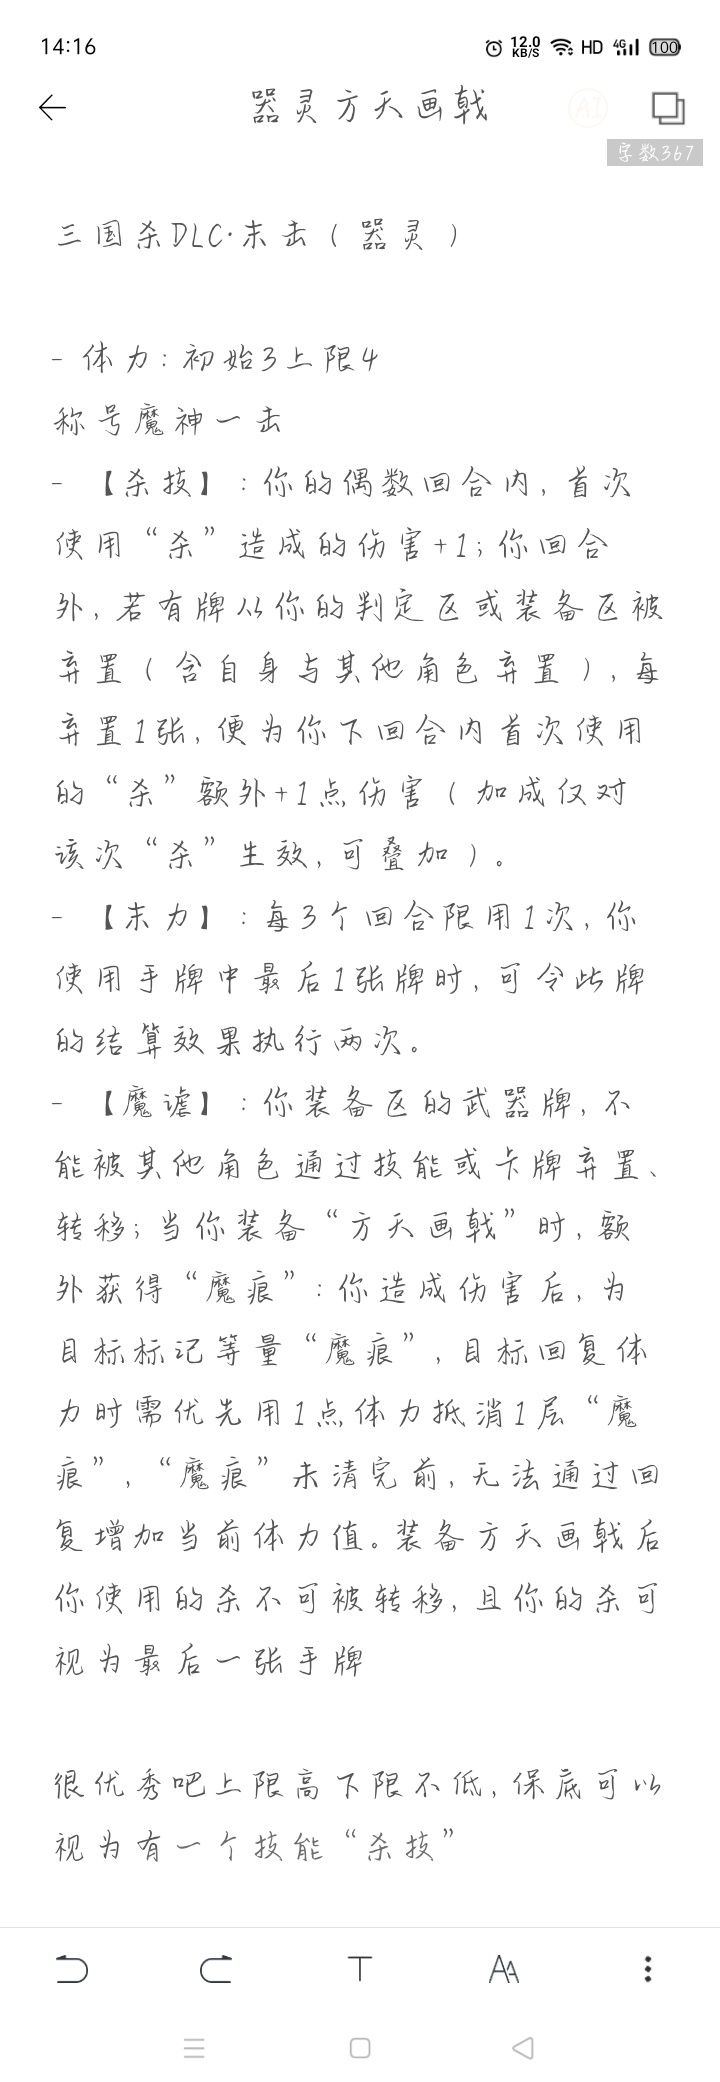 14:16
12.0 KB/S HD 4G 100
器灵方天画戟
AI
字数367
三国杀DLC·末击（器灵）
- 体力：初始3上限4
称号魔神一击
- 【杀技】：你的偶数回合内，首次
使用“杀”造成的伤害+1；你回合
外，若有牌从你的判定区或装备区被
弃置（含自身与其他角色弃置），每
弃置1张，便为你下回合内首次使用
的“杀”额外+1点伤害（加成仅对
该次“杀”生效，可叠加）。
- 【末力】：每3个回合限用1次，你
使用手牌中最后1张牌时，可令此牌
的结算效果执行两次。
- 【魔谑】：你装备区的武器牌，不
能被其他角色通过技能或卡牌弃置、
转移；当你装备“方天画戟”时，额
外获得“魔痕”：你造成伤害后，为
目标标记等量“魔痕”，目标回复体
力时需优先用1点体力抵消1层“魔
痕”，“魔痕”未清完前，无法通过回
复增加当前体力值。装备方天画戟后
你使用的杀不可被转移，且你的杀可
视为最后一张手牌
很优秀吧上限高下限不低，保底可以
视为有一个技能“杀技”
T
AA